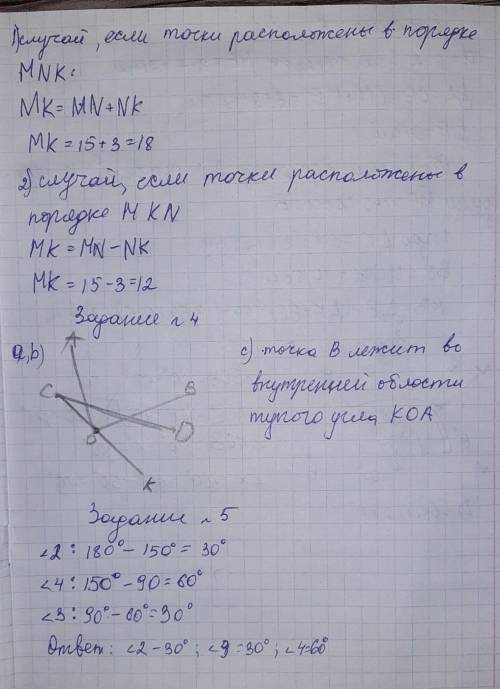 1) случай, если точки расположены в порядке
MNK:
MK = MN + NK
MK = 15 + 3 = 18
2) случай, если точки расположены в
порядке M K N
MK = MN - NK
MK = 15 - 3 = 12
Задание №4
a,b)
A
C
B
O
D
K
c) точка B лежит во
внутренней области
тупого угла KOA
Задание №5
∠2: 180° - 150° = 30°
∠4: 150° - 90 = 60°
∠3: 90° - 60° = 30°
Ответ: ∠2 - 30°; ∠3 = 30°; ∠4=60°